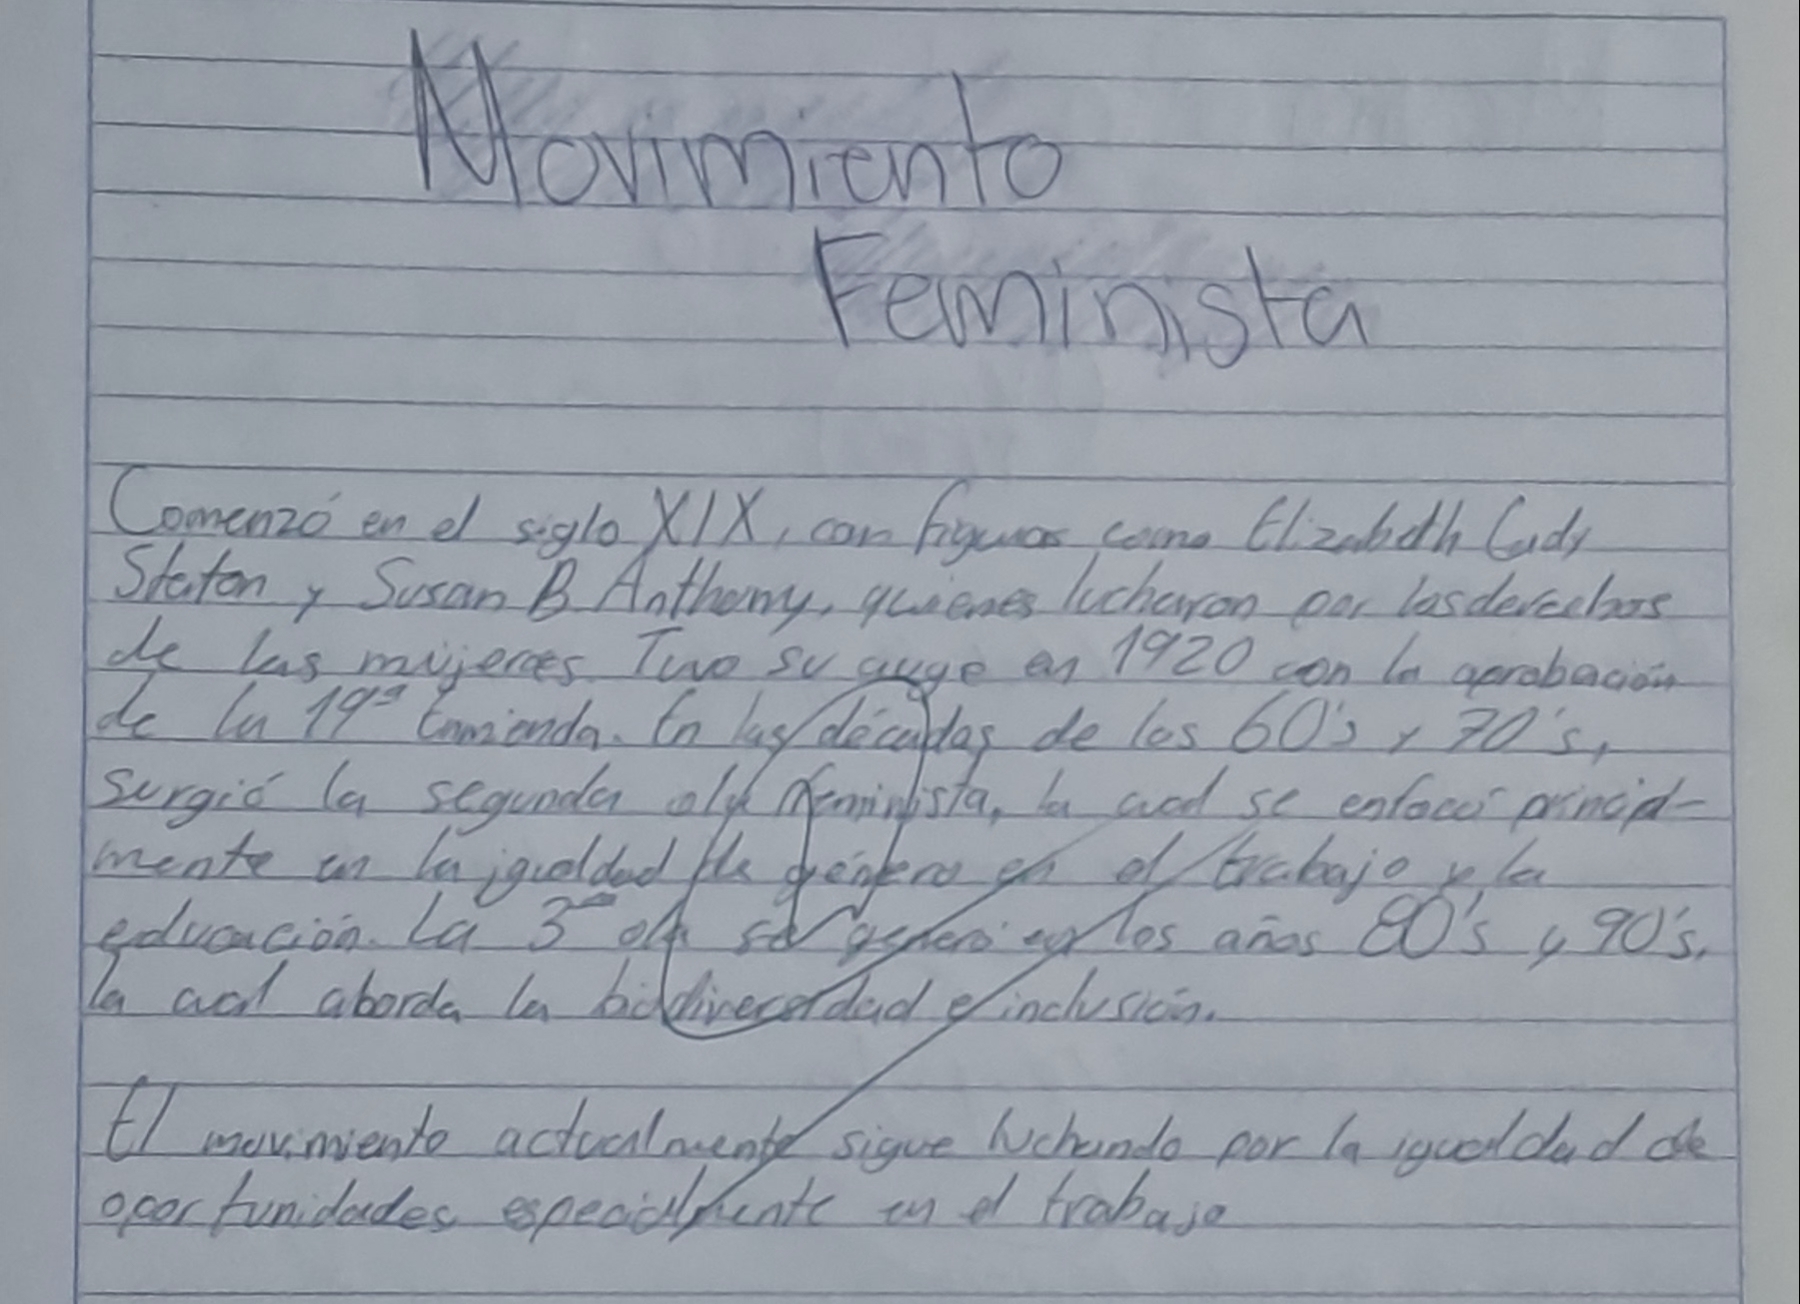 Movimiento
Feminista
Comenzó en el siglo XIX, con figuras como Elizabeth Cady
Staton y Susan B Anthony, quienes lucharon por los derechos
de las mujeres. Tuvo su auge en 1920 con la aprobación
de la 19ª Enmienda. En las décadas de los 60's y 70's,
surgió la segunda ola feminista, la cual se enfocó principal-
mente en la igualdad de género en el trabajo y la
educación. La 3ra ola se generó en los años 80's y 90's,
la cual aborda la biodiversidad e inclusión.
El movimiento actualmente sigue luchando por la igualdad de
oportunidades especialmente en el trabajo